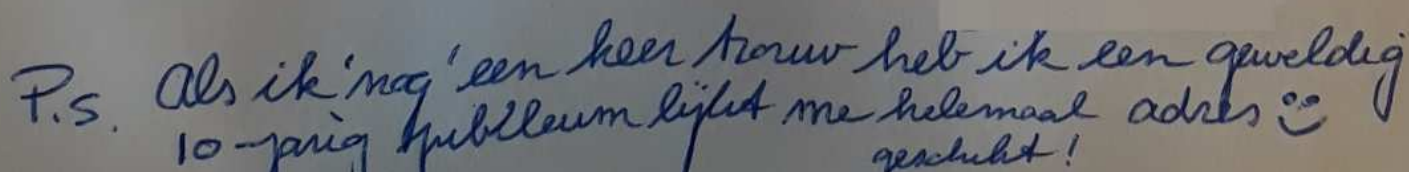 P.S. Als ik 'nog' een keer trouw heb ik een geweldig
adres ☺
10-jarig jubileum lijkt me helemaal
geschikt!